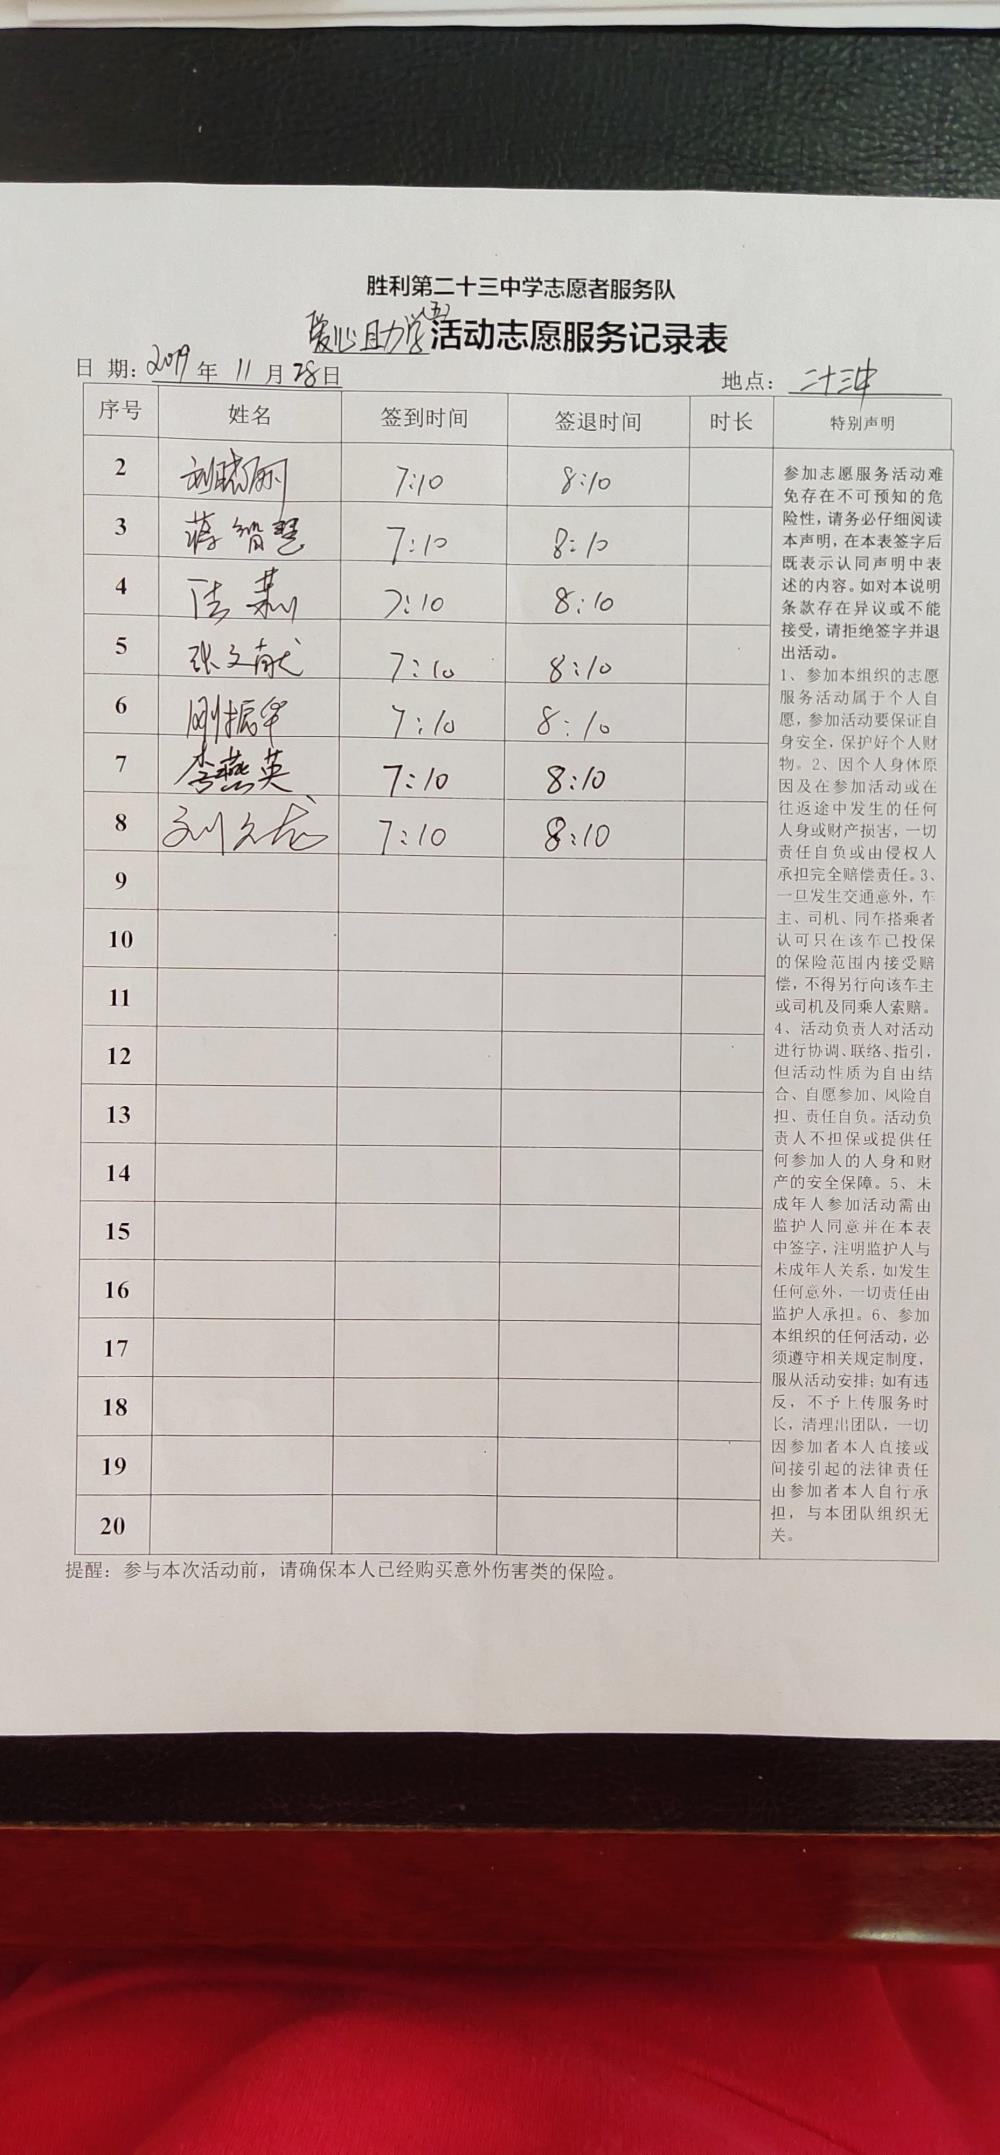 胜利第二十三中学志愿者服务队
爱心助学(五)活动志愿服务记录表
日 期: 2019 年 11 月 28 日 地点: 二十三中
序号 姓名 签到时间 签退时间 时长 特别声明
2 刘晓丽 7:10 8:10
3 蒋智慧 7:10 8:10
4 7:10 8:10
5 张文献 7:10 8:10
6 7:10 8:10
7 李燕英 7:10 8:10
8 7:10 8:10
9
10
11
12
13
14
15
16
17
18
19
20
参加志愿服务活动难
免存在不可预知的危
险性,请务必仔细阅读
本声明,在本表签字后
既表示认同声明中表
述的内容。如对本说明
条款存在异议或不能
接受,请拒绝签字并退
出活动。
1、参加本组织的志愿
服务活动属于个人自
愿,参加活动要保证自
身安全,保护好个人财
物。2、因个人身体原
因及在参加活动或在
往返途中发生的任何
人身或财产损害,一切
责任自负或由侵权人
承担完全赔偿责任。3、
一旦发生交通意外,车
主、司机、同车搭乘者
认可只在该车已投保
的保险范围内接受赔
偿,不得另行向该车主
或司机及同乘人索赔。
4、活动负责人对活动
进行协调、联络、指引,
但活动性质为自由结
合、自愿参加、风险自
担、责任自负。活动负
责人不担保或提供任
何参加人的人身和财
产的安全保障。5、未
成年人参加活动需由
监护人同意并在本表
中签字,注明监护人与
未成年人关系,如发生
任何意外,一切责任由
监护人承担。6、参加
本组织的任何活动,必
须遵守相关规定制度,
服从活动安排;如有违
反,不予上传服务时
长,清理出团队,一切
因参加者本人直接或
间接引起的法律责任
由参加者本人自行承
担,与本团队组织无
关。
提醒:参与本次活动前,请确保本人已经购买意外伤害类的保险。